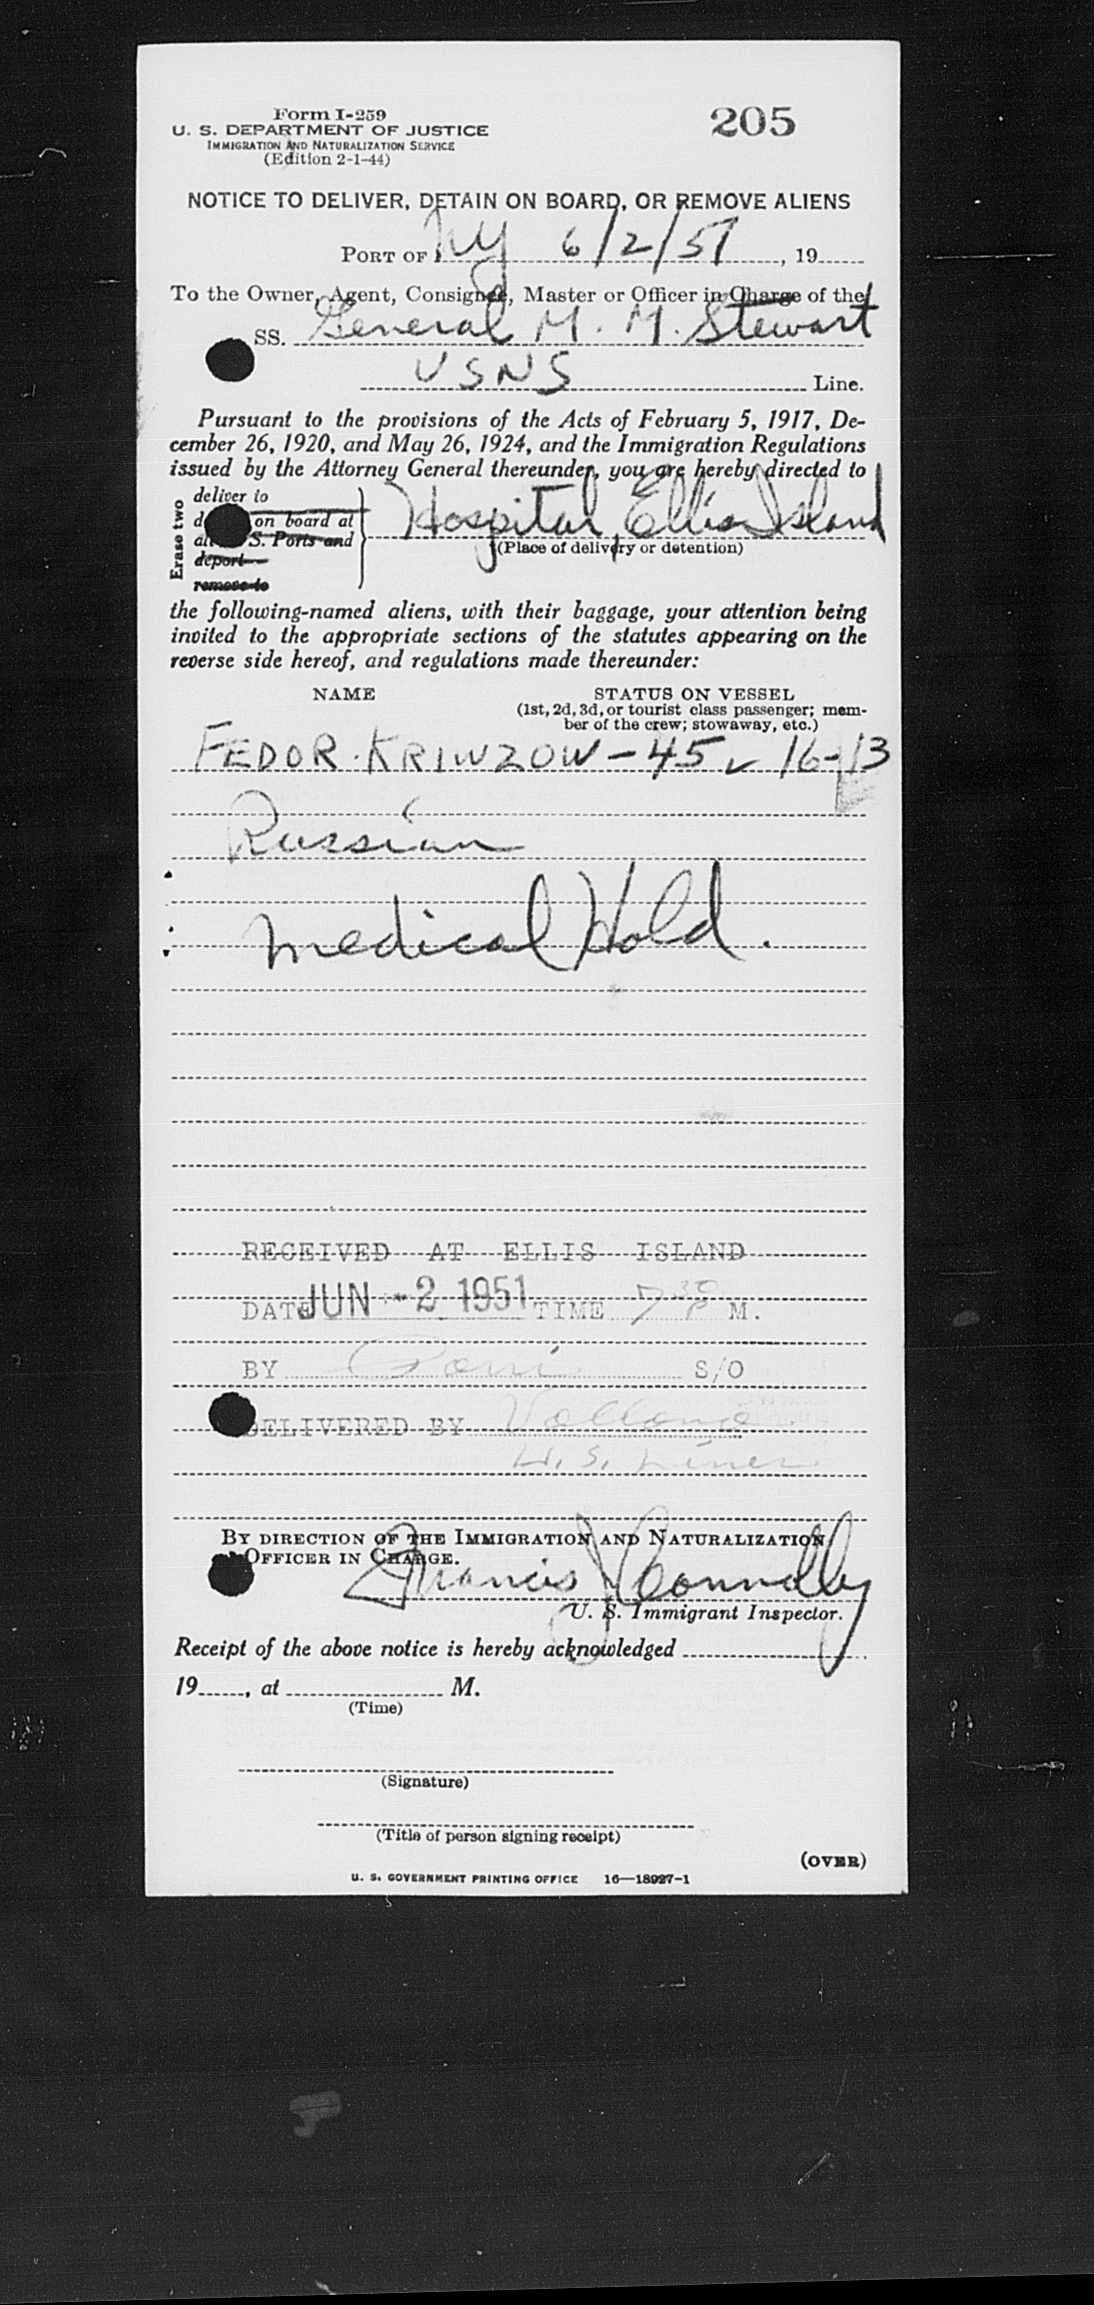 Form I-259
U. S. DEPARTMENT OF JUSTICE
IMMIGRATION AND NATURALIZATION SERVICE
(Edition 2-1-44)
205
NOTICE TO DELIVER, DETAIN ON BOARD, OR REMOVE ALIENS
PORT OF NY 6/2/51, 19
To the Owner, Agent, Consignee, Master or Officer in Charge of the
SS. General M. M. Stewart
USNS Line.
Pursuant to the provisions of the Acts of February 5, 1917, De-
cember 26, 1920, and May 26, 1924, and the Immigration Regulations
issued by the Attorney General thereunder, you are hereby directed to
Erase two
deliver to
on board at
S. Ports and
deport
remove to
Hospital, Ellis Island
(Place of delivery or detention)
the following-named aliens, with their baggage, your attention being
invited to the appropriate sections of the statutes appearing on the
reverse side hereof, and regulations made thereunder:
NAME STATUS ON VESSEL
(1st, 2d, 3d, or tourist class passenger; mem-
ber of the crew; stowaway, etc.)
FEDOR KRIWZOW - 45 ✓ 16-13
Russian
Medical Hold.
RECEIVED AT ELLIS ISLAND
DATE JUN -2 1951 TIME 7 30 P M.
BY S/O
DELIVERED BY
U. S. Lines
BY DIRECTION OF THE IMMIGRATION AND NATURALIZATION
OFFICER IN CHARGE.
Francis J Connolly
U. S. Immigrant Inspector.
Receipt of the above notice is hereby acknowledged
19, at M.
(Time)
(Signature)
(Title of person signing receipt)
(OVER)
U. S. GOVERNMENT PRINTING OFFICE 16—18927-1